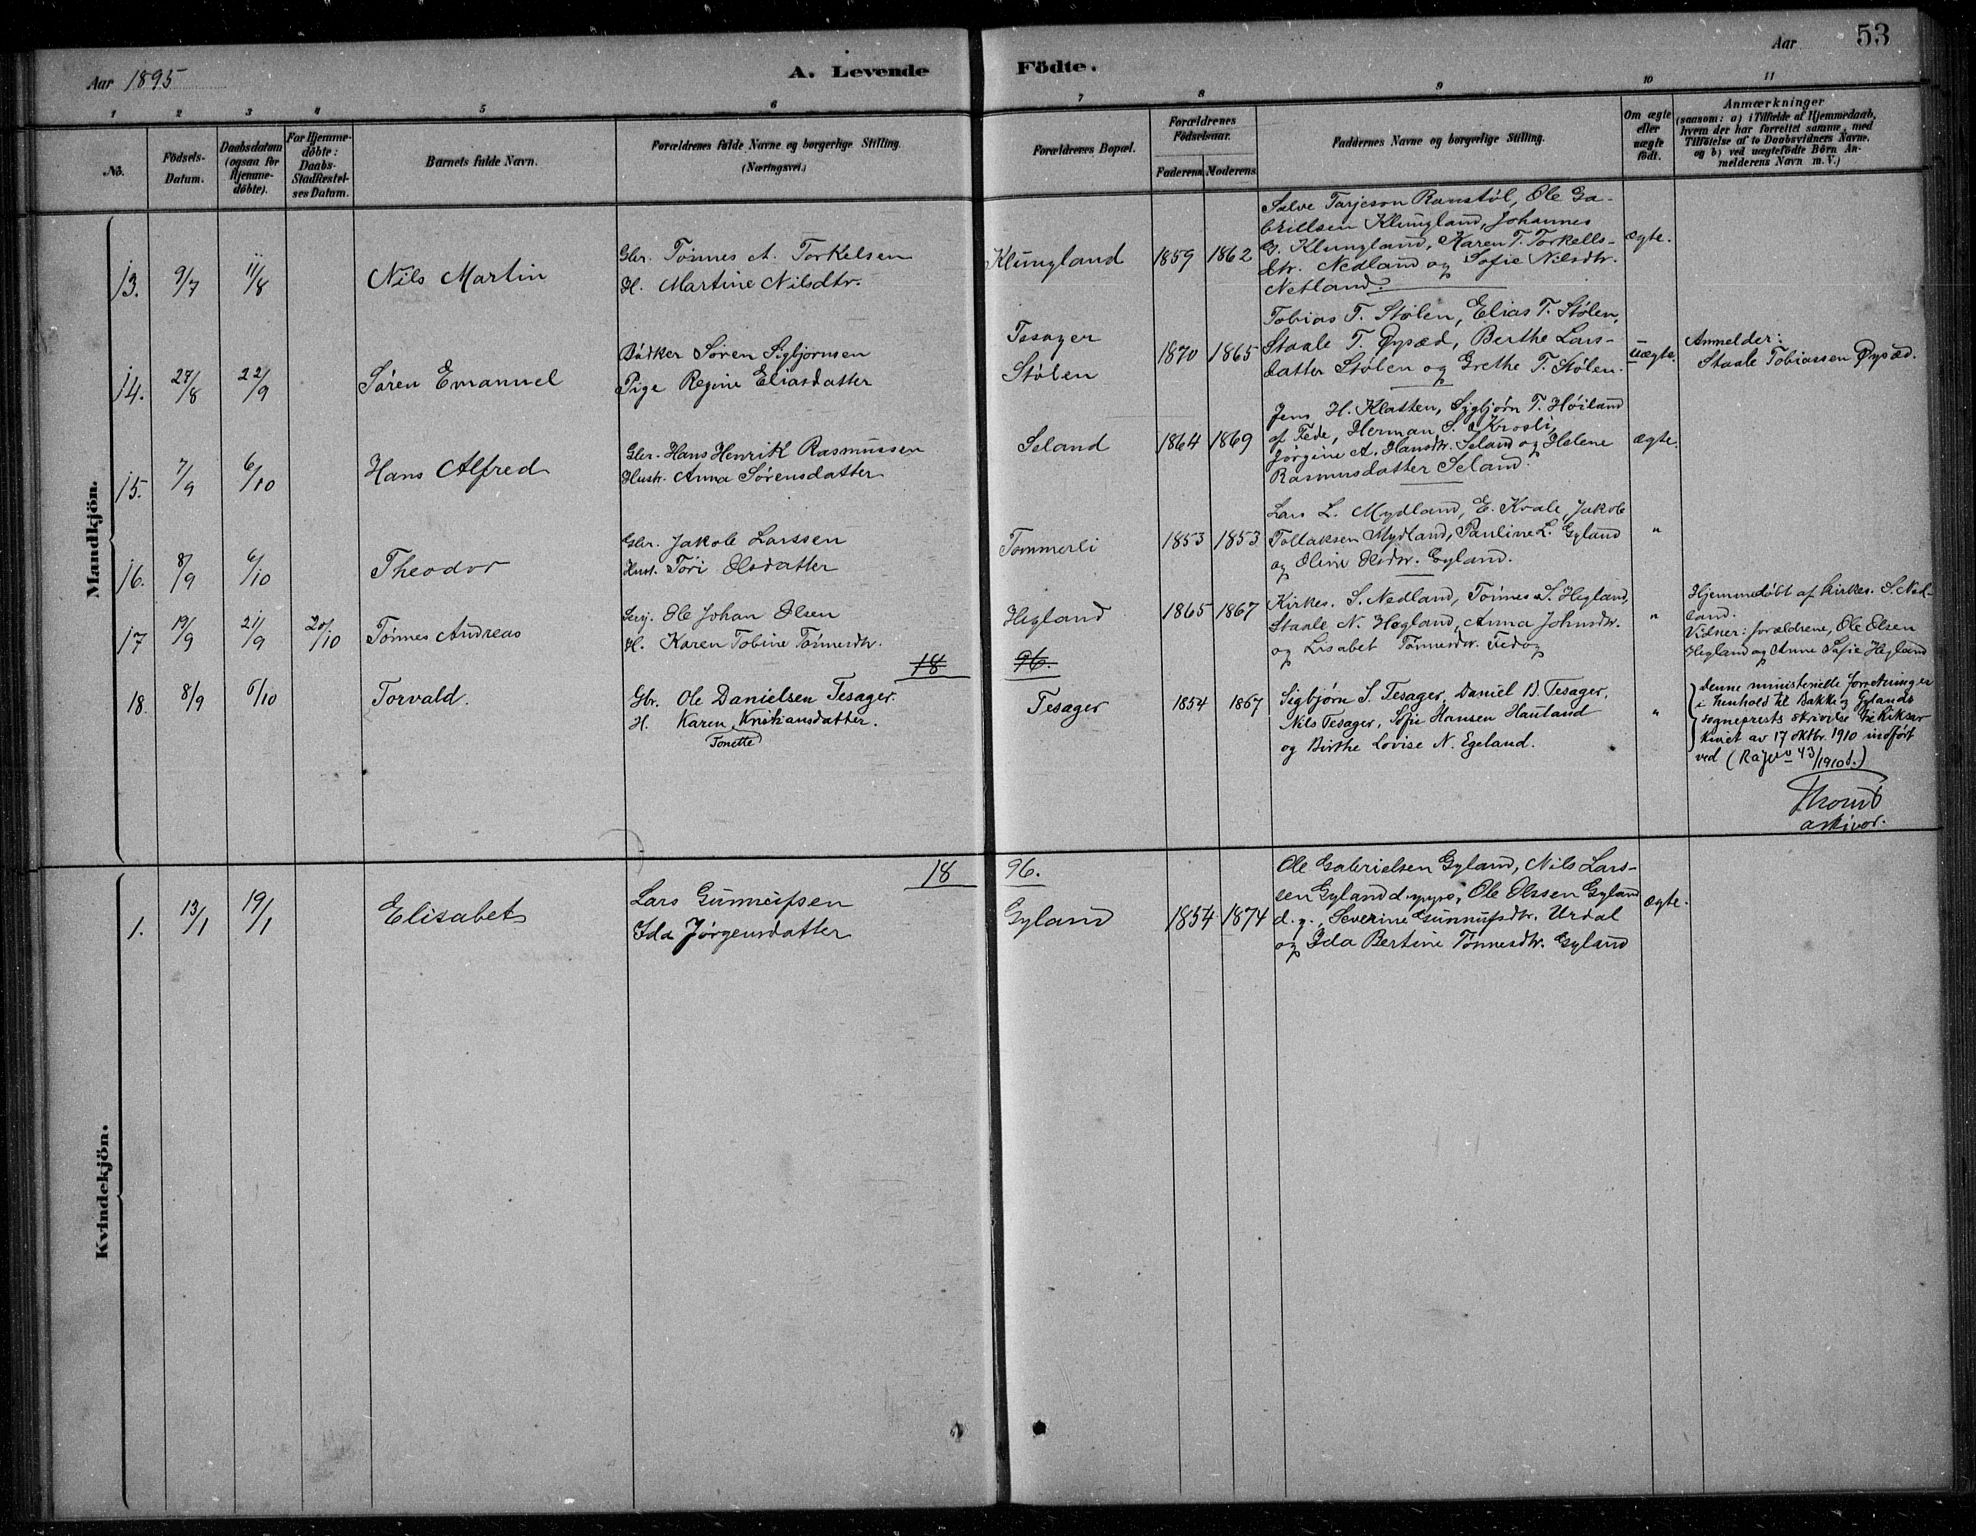 Aar 1895
A. Levende
Födte.
Aar
53
1 2 3 4 5 6 7 8 9 10 11
No.
Födsels-
Datum.
Daabsdatum
(ogsaa for
Hjemme-
döbte).
For Hjemme-
döbte:
Daabs-
Stadfæstel-
ses Datum.
Barnets fulde Navn.
Forældrenes fulde Navne og borgerlige Stilling.
(Næringsvei.)
Forældrenes Bopæl.
Forældrenes
Födselsaar.
Faderens
Moderens
Faddernes Navne og borgerlige Stilling.
Om ægte
eller
uægte
födt.
Anmærkninger
(saasom: a) i Tilfælde af Hjemmedaab,
hvem der har forrettet samme, med
Tilföielse af to Daabsvidners Navne,
og b) ved uægtefödte Börn An-
melderens Navn m. V.)
Mandkjön.
13. 9/7 11/8 Nils Martin
Gbr. Tønnes A. Torkelsen
H. Martine Nilsdtr.
Klungland 1859 1862
Salve Tarjeson Ramstøl, Ole Ga-
brillsen Klungland, Johannes
G. Klungland, Karen T. Torkells-
dtr. Nedland og Sofie Nilsdtr.
Netland.
ægte.
14. 27/8 22/9 Søren Emanuel
Bødker Søren Sigbjørnsen
Pige Regine Eliasdatter
Tesager
Stølen
1870 1865
Tobias T. Stølen, Elias T. Stølen,
Staale T. Øysæd, Berthe Lars-
datter Stølen og Grethe T. Stølen.
uægte.
Anmelder:
Staale Tobiassen Øysæd.
15. 7/9 6/10 Hans Alfred
Gbr. Hans Henrik Rasmussen
Hustr. Anna Sørensdatter
Seland 1864 1869
Jens H. Klatten, Sigbjørn T. Høiland
af Fede, Herman S. Krosli,
Jørgine A. Hansdtr. Seland og Helene
Rasmusdatter Seland.
ægte.
16. 8/9 6/10 Theodor
Gbr. Jakob Larssen
Hust. Tøri Olsdatter
Tommerli 1853 1853
Lars L. Mydland, E. Kvale, Jakob
Tollaksen Mydland, Pauline L. Gyland
og Oline Olsdtr. Gyland.
"
17 19/9 21/9 20/10 Tønnes Andreas
Serj. Ole Johan Olsen
H. Karen Tobine Tønnesdtr.
Hegland 1865 1867
Kirkes. S. Nedland, Tønnes S. Hegland,
Staale N. Hegland, Anna Johnsdtr.
og Lisabet Tønnesdtr.
"
Hjemmedøbt af kirkes. S. Ned-
land.
Vidner: forældrene, Ole Olsen
Hegland og Anne Sofie Hegland
18 96.
18. 8/9 6/10 Torvald.
Gbr. Ole Danielsen Tesager.
H. Karen Kristiansdatter.
Tonette
Tesager 1854 1867
Sigbjørn S. Tesager, Daniel D. Tesager,
Nils Tesager, Sofie Hansen Hauland
og Birthe Lovise N. Egeland.
"
Denne ministerielle forretning er
i henhold til Bakke og Gylands
sogneprests skrivelse til Riksar
kivet av 17 oktbr. 1910 indført
ved (Ra. jnr 43/1910 d.)
arkivar.
18 96.
Kvindekjön.
1. 13/1 19/1 Elisabet
Lars Gunneufsen
Ida Jørgensdatter
Gyland 1854 1874
Ole Gabrielsen Gyland, Nils Lars-
sen Gyland d. yngre, Ole Olssen Gyland
d. y., Severine Gunnufsdtr. Urdal
og Ida Bertine Tønnesdtr. Gyland
ægte.